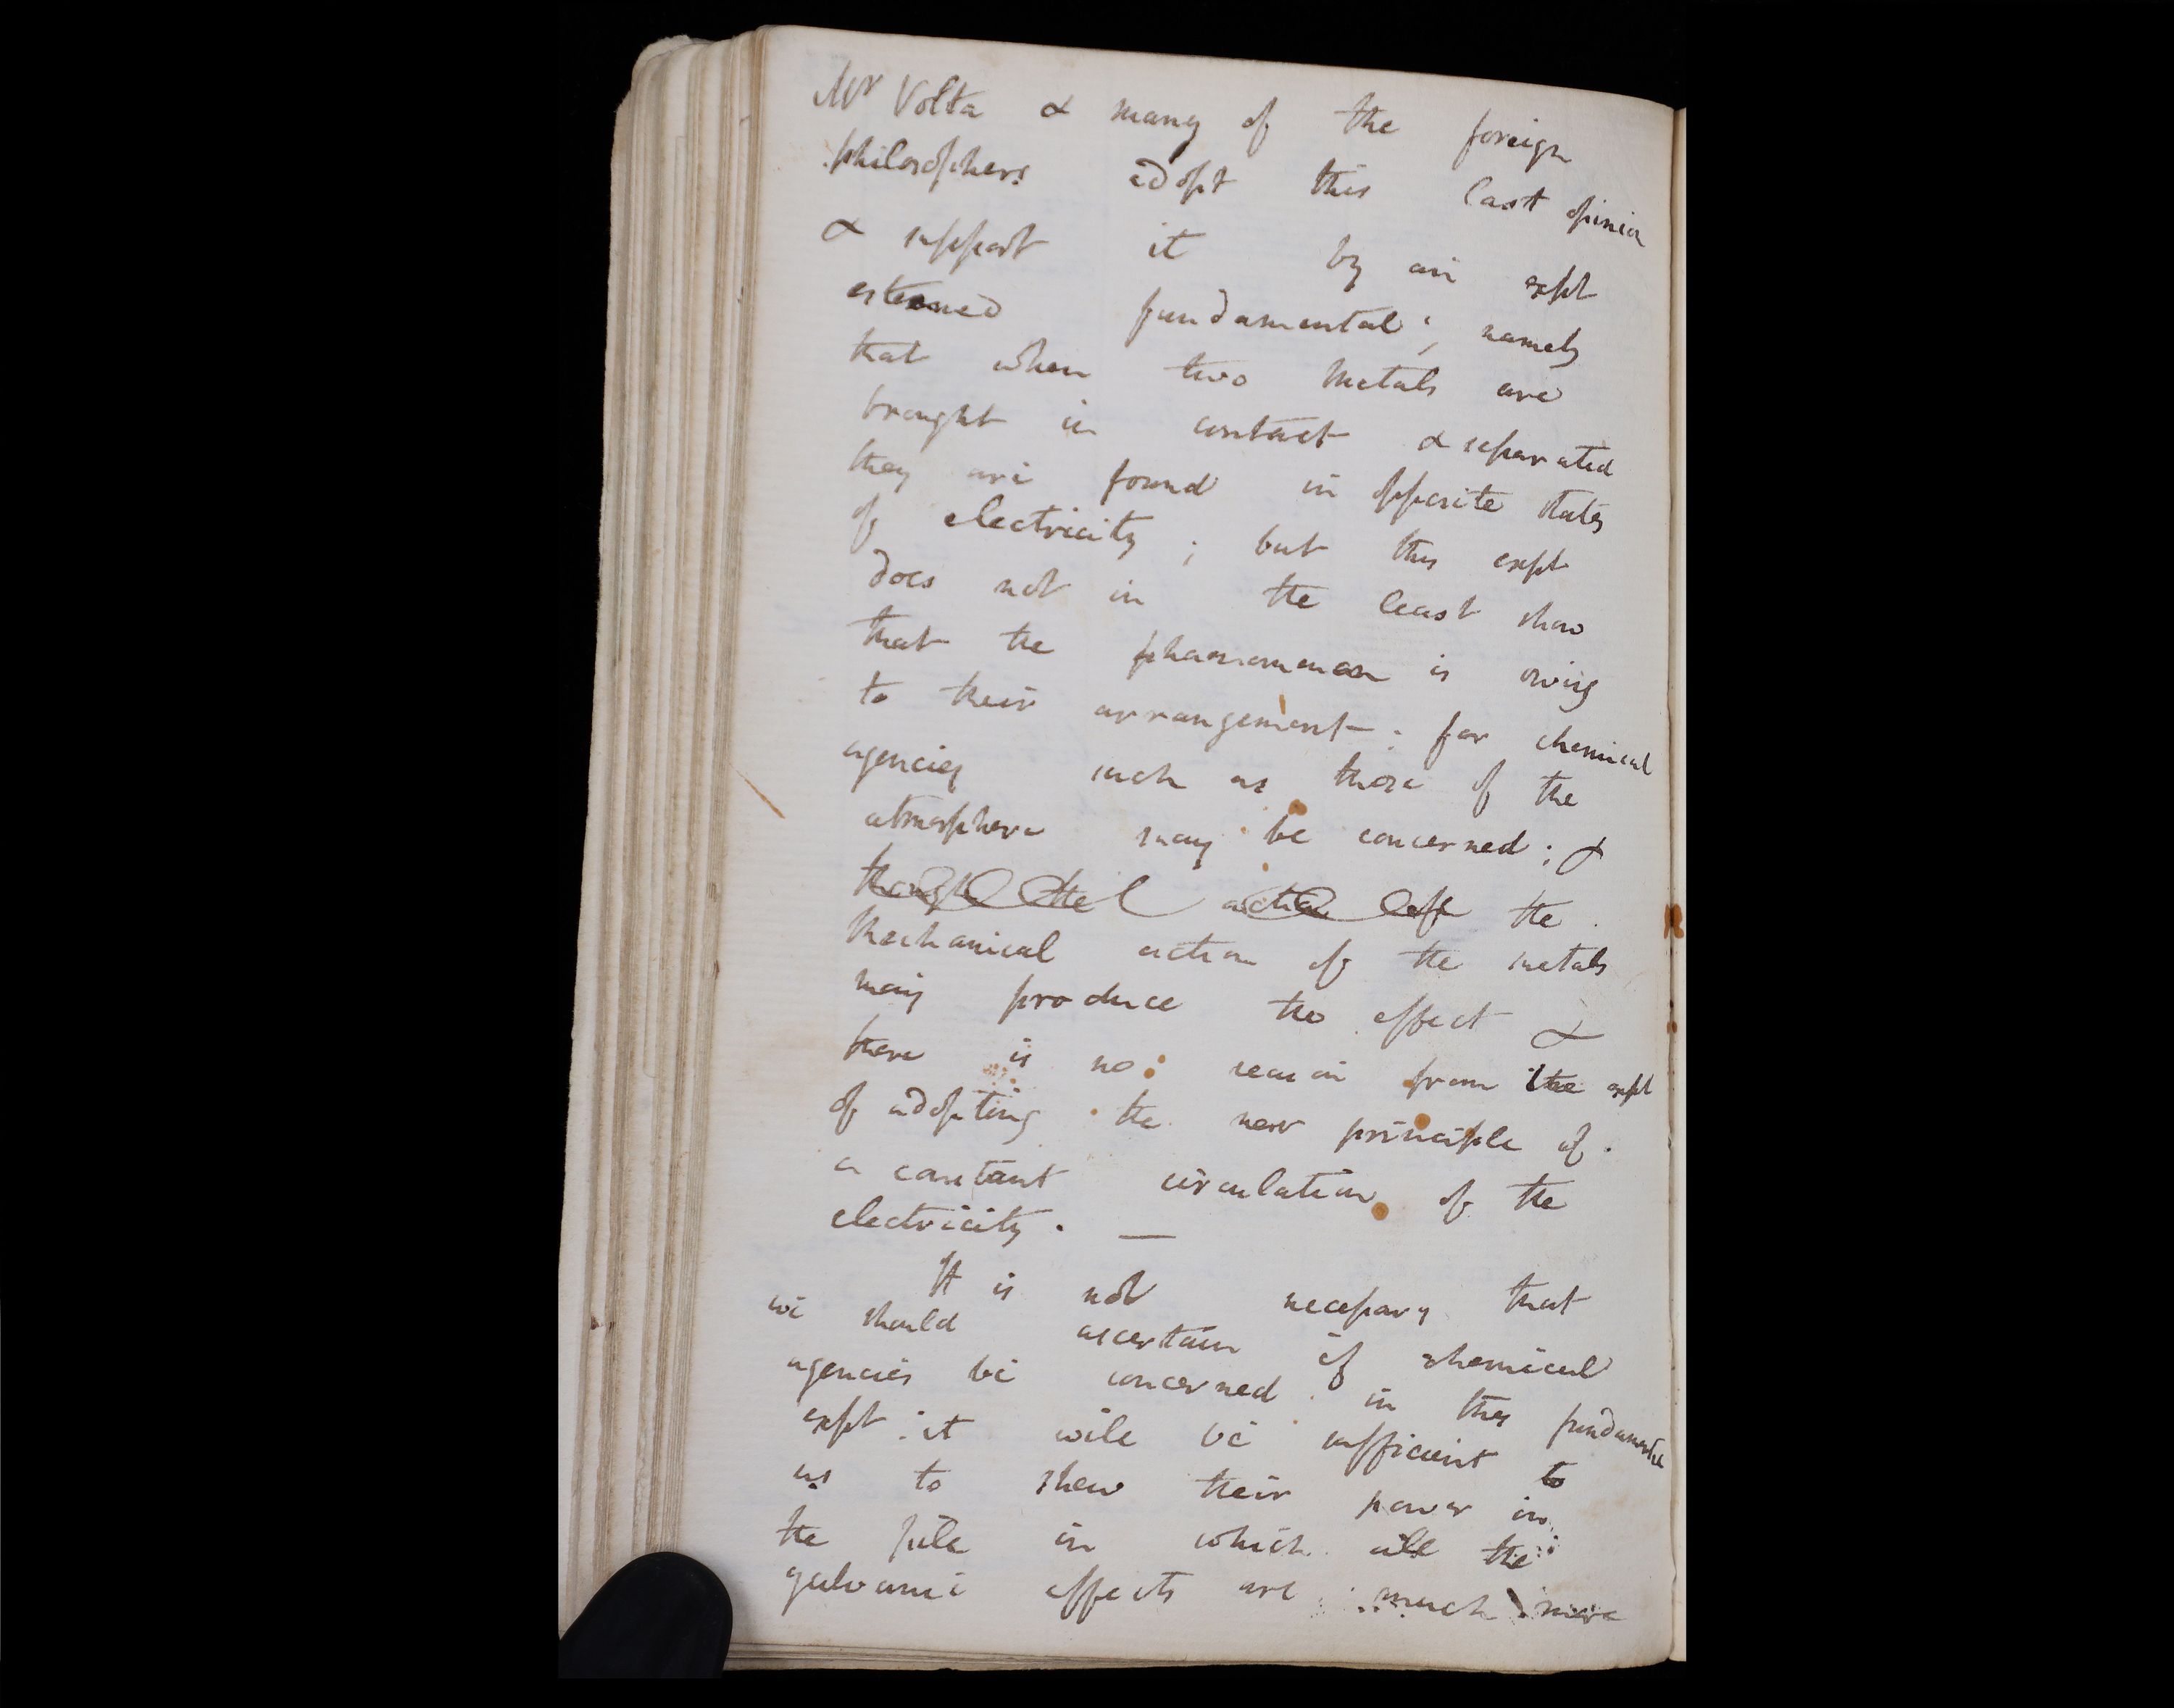 Mr Volta & many of the foreign
philosophers adopt this last opinion
& support it by an expt
esteemed fundamental; namely
that when two Metals are
brought in contact & separated
they are found in opposite states
of electricity; but this expt
does not in the least shew
that the phaenomenon is owing
to their arrangement: for chemical
agencies such as those of the
atmosphere may be concerned; &
though the action of the
Mechanical action of the metals
may produce the effect &
there is no reason from the expt
of adopting the new principle of
a constant circulation of the
electricity. —
It is not necessary that
we should ascertain if chemical
agencies be concerned in this fundamental
expt: it will be sufficient to
us to shew their power in
the pile in which all the
galvanic effects are much more